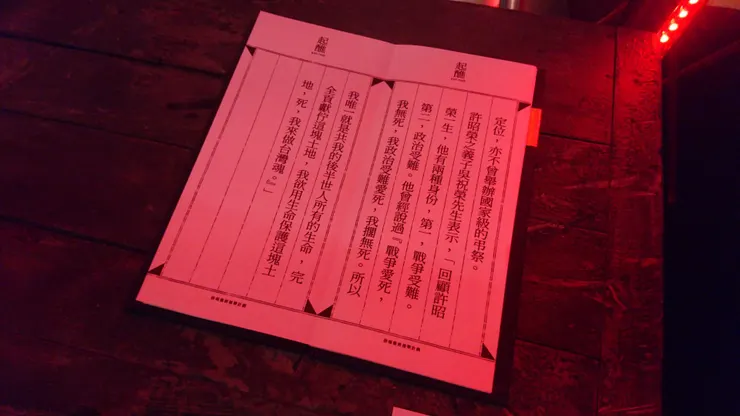 起醮
定位，亦不曾舉辦國家級的弔祭。
許昭榮之義子吳祝榮先生表示，「回顧許昭
榮一生，他有兩種身份，第一，戰爭受難。
第二，政治受難。他曾經說過『戰爭愛死，
我無死，我政治受難愛死，我擱無死。所以
起醮
我唯一就是共我的後半世人所有的生命，完
全貢獻佇這塊土地，我欲用生命保護這塊土
地，死，我來做台灣魂。』」